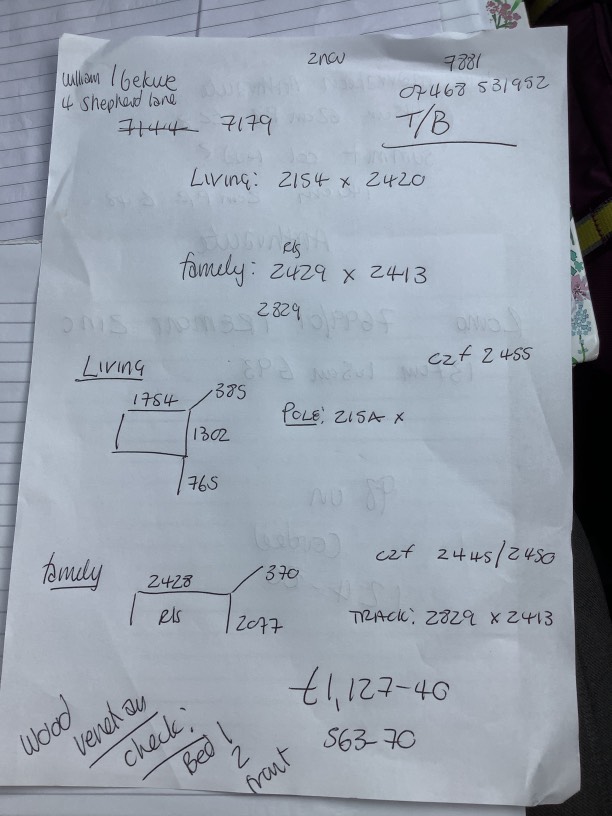 2nov 7881
William Ibekwe 07468 531952
4 Shepherd lane
7144 7179 T/B
Living: 2154 x 2420
Rls
family: 2429 x 2413
2829
Living czf 2455
1754 385
1302 POLE: 215A x
765
family czf 2445/2450
2428 370
Rls 2077 TRACK: 2829 x 2413
£1,127-40
563-70
wood
venetian
check:
Bed 1
2
front